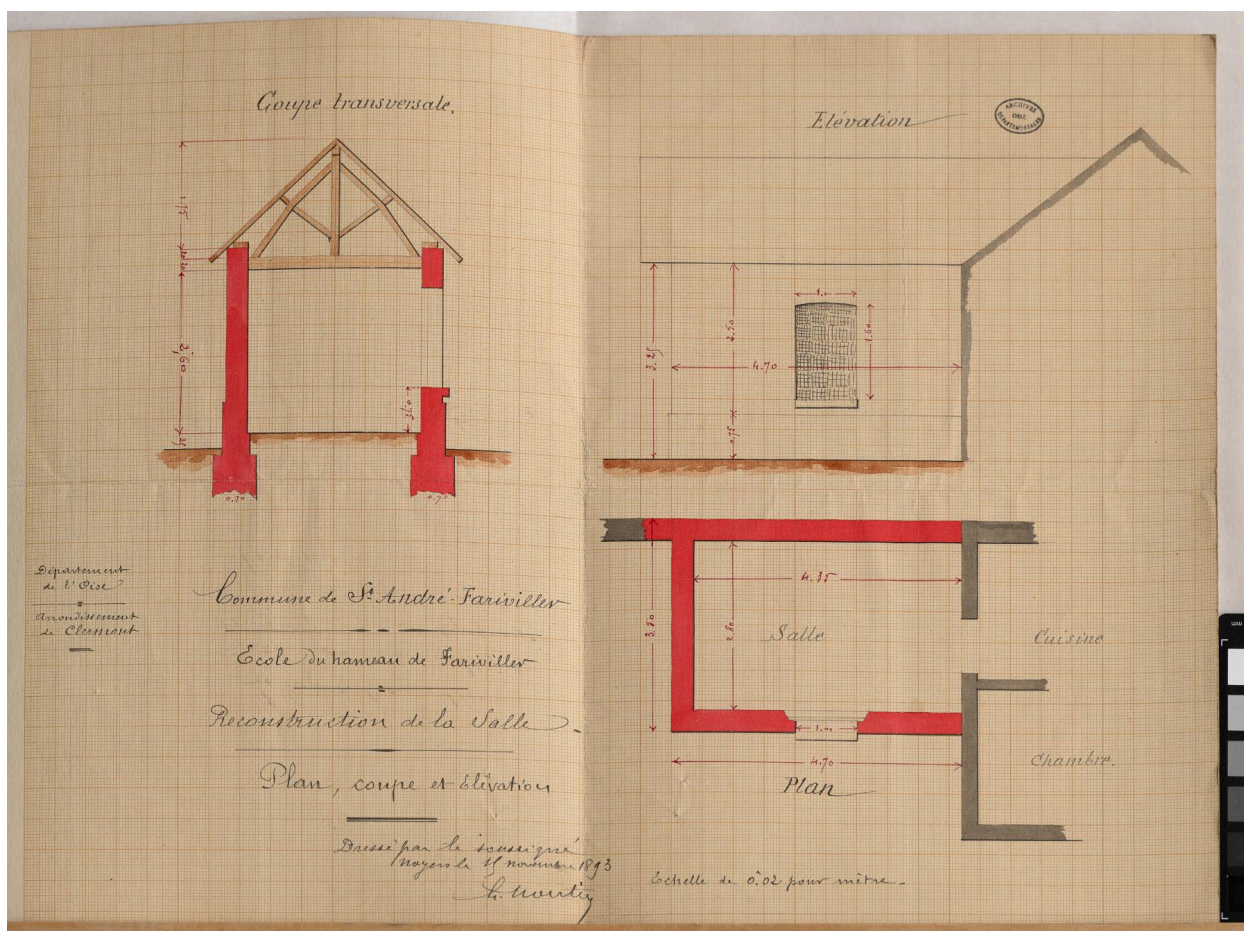 Coupe transversale.
1.75
20
20
2,60
25
0.75
0.70
0.70
Département
de l'Oise
Arrondissement
de Clermont
Commune de St André-Fariviller
Ecole du hameau de Fariviller
Reconstruction de la Salle
Plan, coupe et Elévation
Dressé par le soussigné
Noyers le 15 novembre 1893
Elévation
ARCHIVES
OISE
DÉPARTEMENTALES
1.00
1.60
2.50
3.25
4.70
0.75
4.35
3.50
2.80
Salle
Cuisine
1.00
4.70
Chambre.
Plan
Echelle de 0.02 pour mètre.